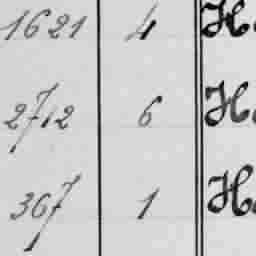 1621 4 H
2712 6 H
367 1 H